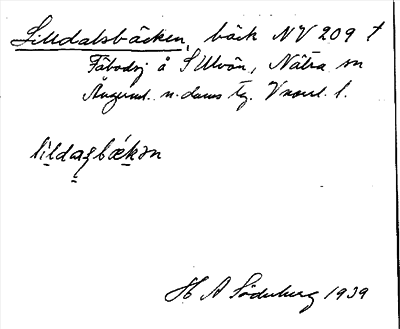 Silldalsbäcken, bäck NV 209 f
Fäbodsj å S Ulvön, Nätra sn
Ångerml. n. doms tg. Vnorrl. l.
lildaʂbækən
H A Söderberg 1939